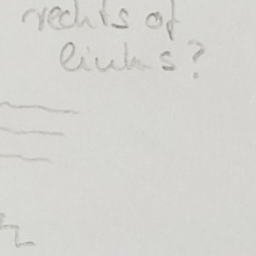 rechts of
links?